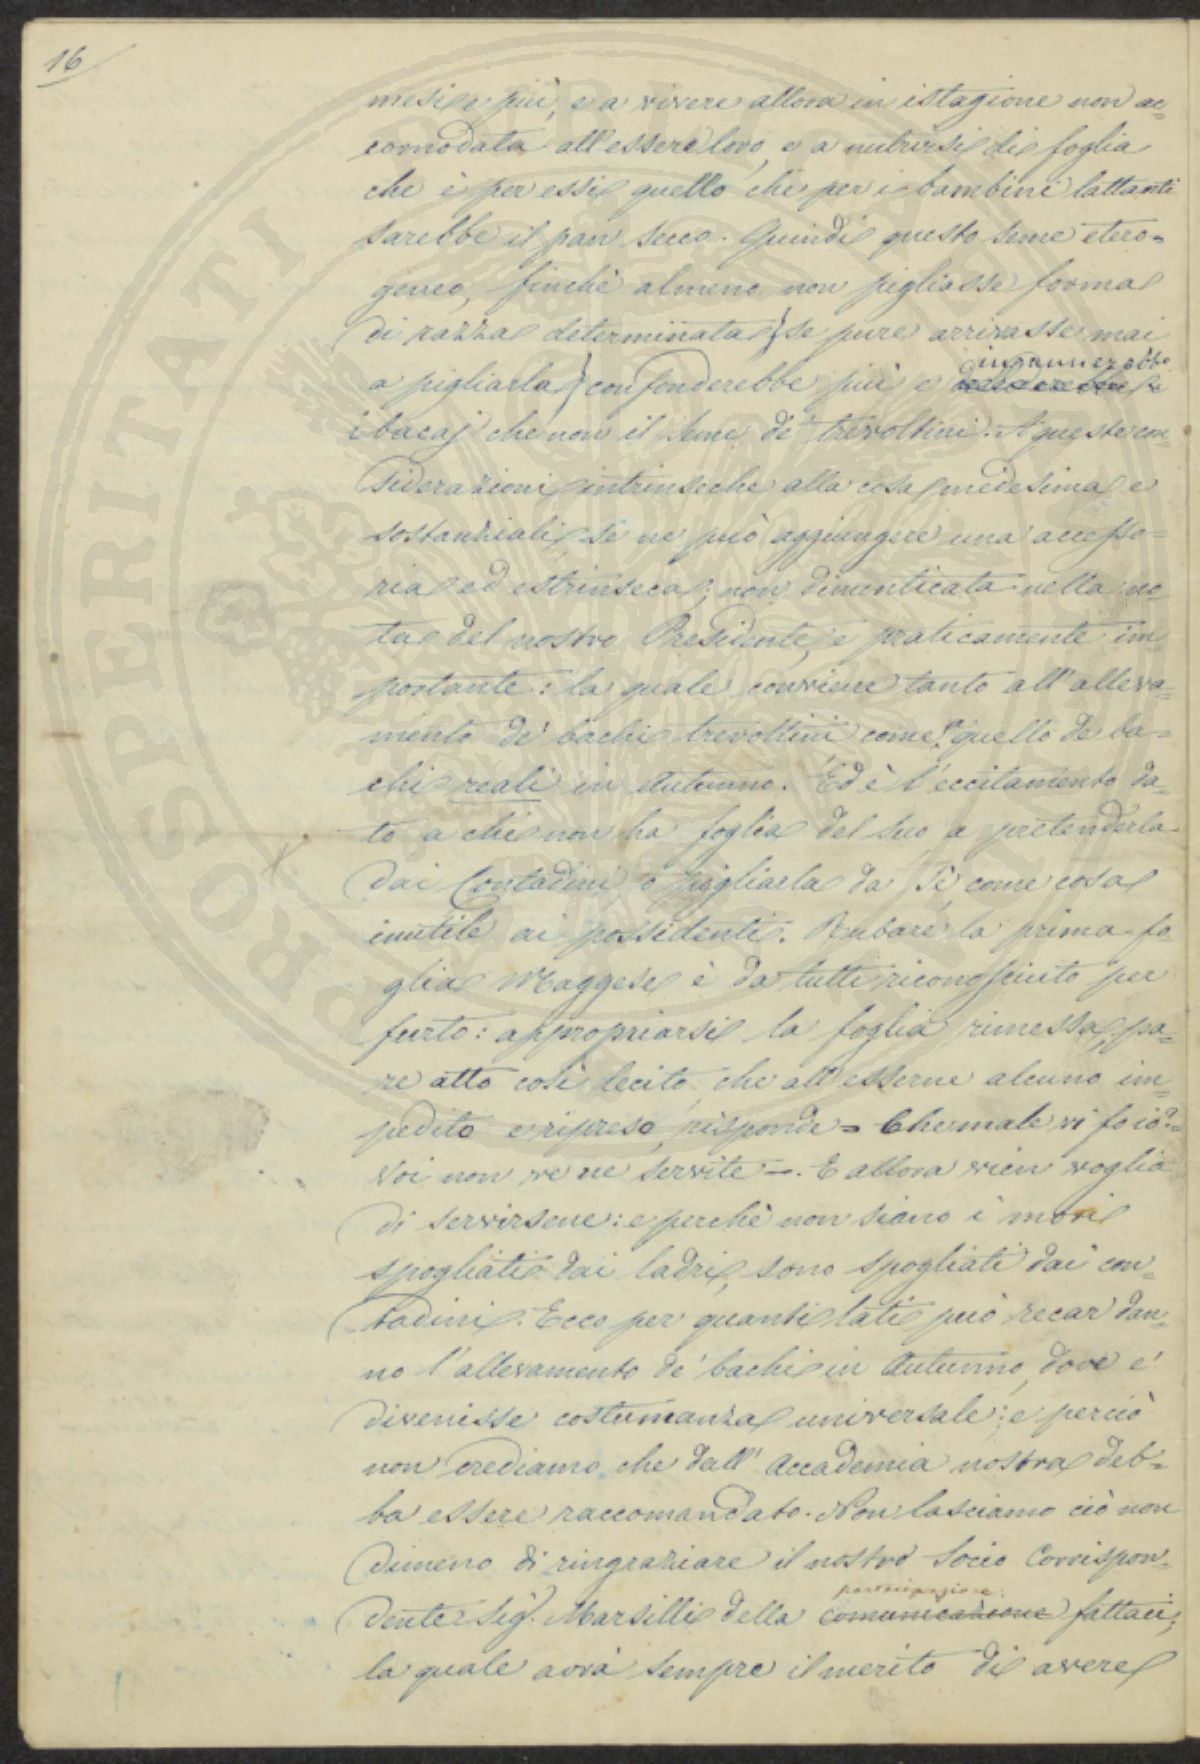 16
mesi e più, e a vivere allora in istagione non ac=
comodata all'essere loro, e a nutrirsi di foglia
che è per essi quello che per i bambini lattanti
sarebbe il pan secco. Quindi questo seme etero=
geneo, finchè almeno non pigliasse forma
di razza determinata (se pure arrivasse mai
ingannerebbe
a pigliarla) confonderebbe più e
i bacaj che non il seme de' trevoltini. A queste con=
siderazioni intrinseche alla cosa medesima e
sostanziali, se ne può aggiungere una accesso=
ria ed estrinseca; non dimenticata nella no
ta del nostro Presidente, e praticamente im
portante: la quale conviene tanto all'alleva=
mento de' bachi trevoltini come quello de ba=
chi reali in Autunno. Ed è l'eccitamento da=
to a chi non ha foglia del suo a pretenderla
dai Contadini, o pigliarla da sè, come cosa
inutile ai possidenti. Rubare la prima fo
glia Maggese è da tutti riconosciuto per
furto: appropriarsi la foglia rimessa, pa=
re atto così lecito, che all'esserne alcuno im=
pedito e ripreso, risponde = Che male vi fo io?=
Voi non ve ne servite =. E allora vien voglia
di servirsene: e perchè non siano i mori
spogliati dai ladri, sono spogliati dai con=
tadini. Ecco per quanti lati può recar dan=
no l'allevamento de' bachi in Autunno, dove e'
divenisse costumanza universale; e perciò
non crediamo che dall' Accademia nostra deb=
ba essere raccomandato. Non lasciamo ciò non
dimeno di ringraziare il nostro Socio Corrispon=
partecipazione
dente Sig.r Marsilli della comunicazione fattaci;
la quale avrà sempre il merito di avere
PROSPERITATI PUBLICAE